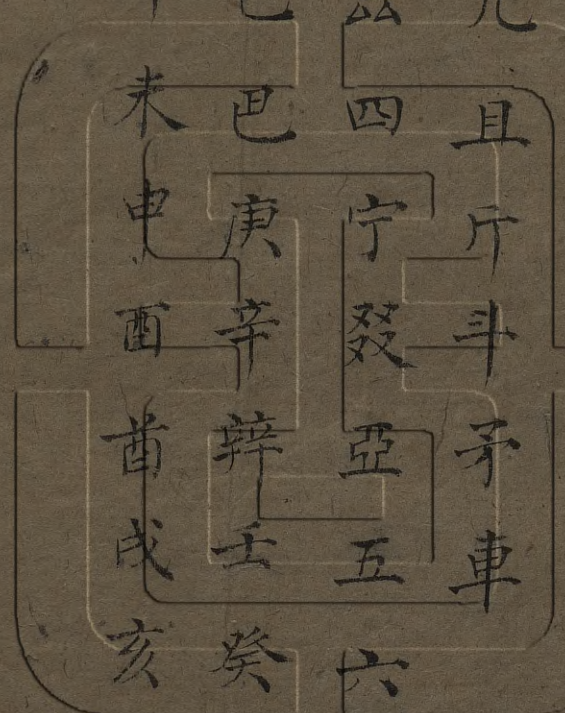 且斤斗矛車
四宁叕亞五六
巴庚辛辡壬癸
未申酉酋戌亥